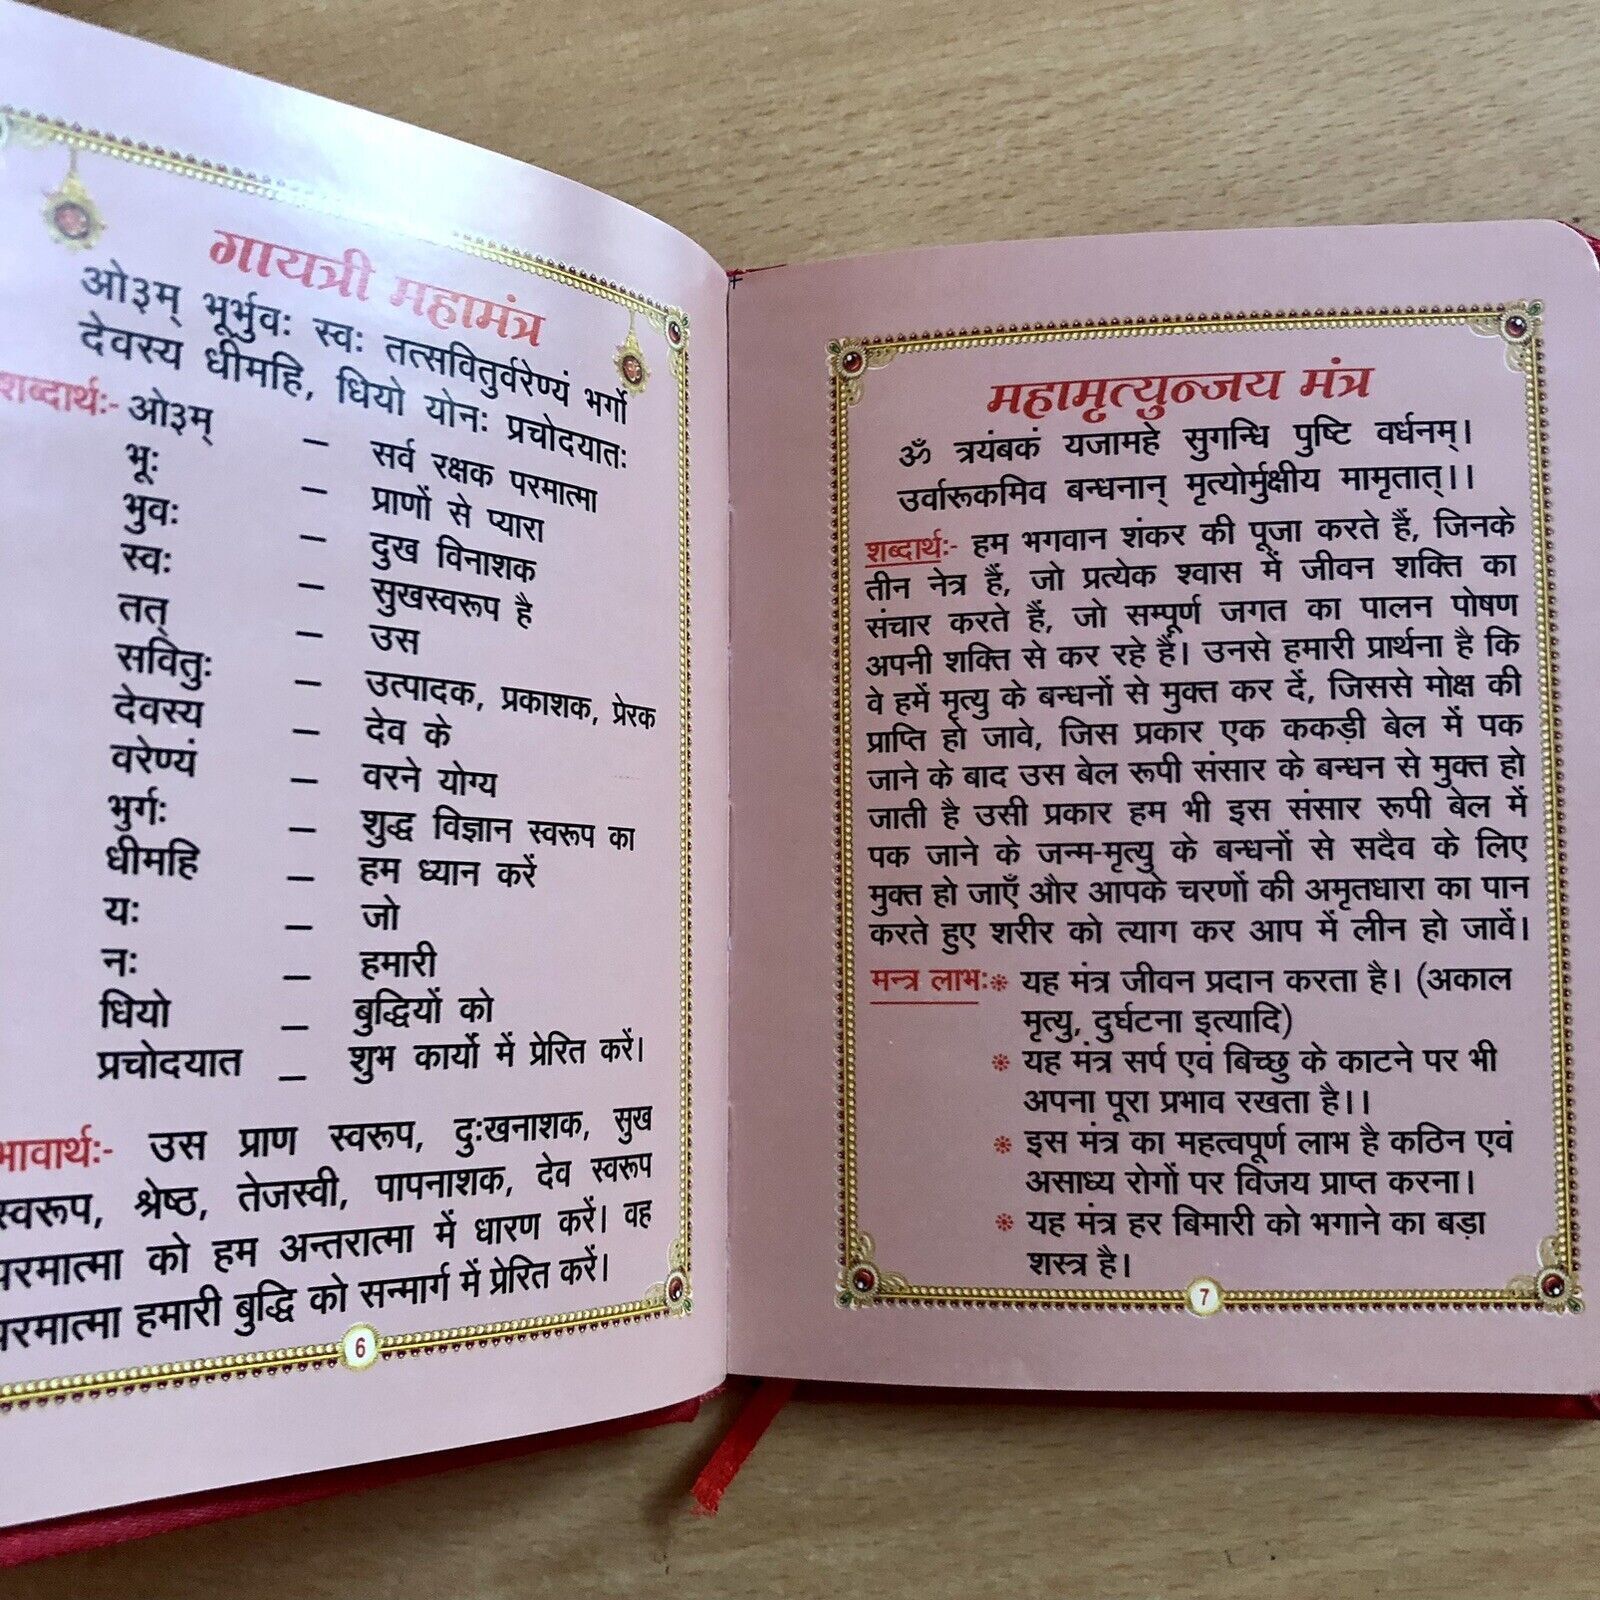 गायत्री महामंत्र
ओ३म् भूर्भुवः स्वः तत्सवितुर्वरेण्यं भर्गो
देवस्य धीमहि, धियो योनः प्रचोदयातः
शब्दार्थः- ओ३म् – सर्व रक्षक परमात्मा
भूः – प्राणों से प्यारा
भुवः – दुख विनाशक
स्वः – सुखस्वरूप है
तत् – उस
सवितुः – उत्पादक, प्रकाशक, प्रेरक
देवस्य – देव के
वरेण्यं – वरने योग्य
भुर्गः – शुद्ध विज्ञान स्वरूप का
धीमहि – हम ध्यान करें
यः – जो
नः – हमारी
धियो – बुद्धियों को
प्रचोदयात – शुभ कार्यो में प्रेरित करें।
भावार्थः- उस प्राण स्वरूप, दुःखनाशक, सुख
स्वरूप, श्रेष्ठ, तेजस्वी, पापनाशक, देव स्वरूप
परमात्मा को हम अन्तरात्मा में धारण करें। वह
परमात्मा हमारी बुद्धि को सन्मार्ग में प्रेरित करें।
6
महामृत्युन्जय मंत्र
ॐ त्रयंबकं यजामहे सुगन्धि पुष्टि वर्धनम्।
उर्वारूकमिव बन्धनान् मृत्योर्मुक्षीय मामृतात्।।
शब्दार्थः- हम भगवान शंकर की पूजा करते हैं, जिनके
तीन नेत्र हैं, जो प्रत्येक श्वास में जीवन शक्ति का
संचार करते हैं, जो सम्पूर्ण जगत का पालन पोषण
अपनी शक्ति से कर रहे हैं। उनसे हमारी प्रार्थना है कि
वे हमें मृत्यु के बन्धनों से मुक्त कर दें, जिससे मोक्ष की
प्राप्ति हो जावे, जिस प्रकार एक ककड़ी बेल में पक
जाने के बाद उस बेल रूपी संसार के बन्धन से मुक्त हो
जाती है उसी प्रकार हम भी इस संसार रूपी बेल में
पक जाने के जन्म-मृत्यु के बन्धनों से सदैव के लिए
मुक्त हो जाएँ और आपके चरणों की अमृतधारा का पान
करते हुए शरीर को त्याग कर आप में लीन हो जावें।
मन्त्र लाभः❋ यह मंत्र जीवन प्रदान करता है। (अकाल
मृत्यु, दुर्घटना इत्यादि)
❋ यह मंत्र सर्प एवं बिच्छु के काटने पर भी
अपना पूरा प्रभाव रखता है।।
❋ इस मंत्र का महत्वपूर्ण लाभ है कठिन एवं
असाध्य रोगों पर विजय प्राप्त करना।
❋ यह मंत्र हर बिमारी को भगाने का बड़ा
शस्त्र है।
7